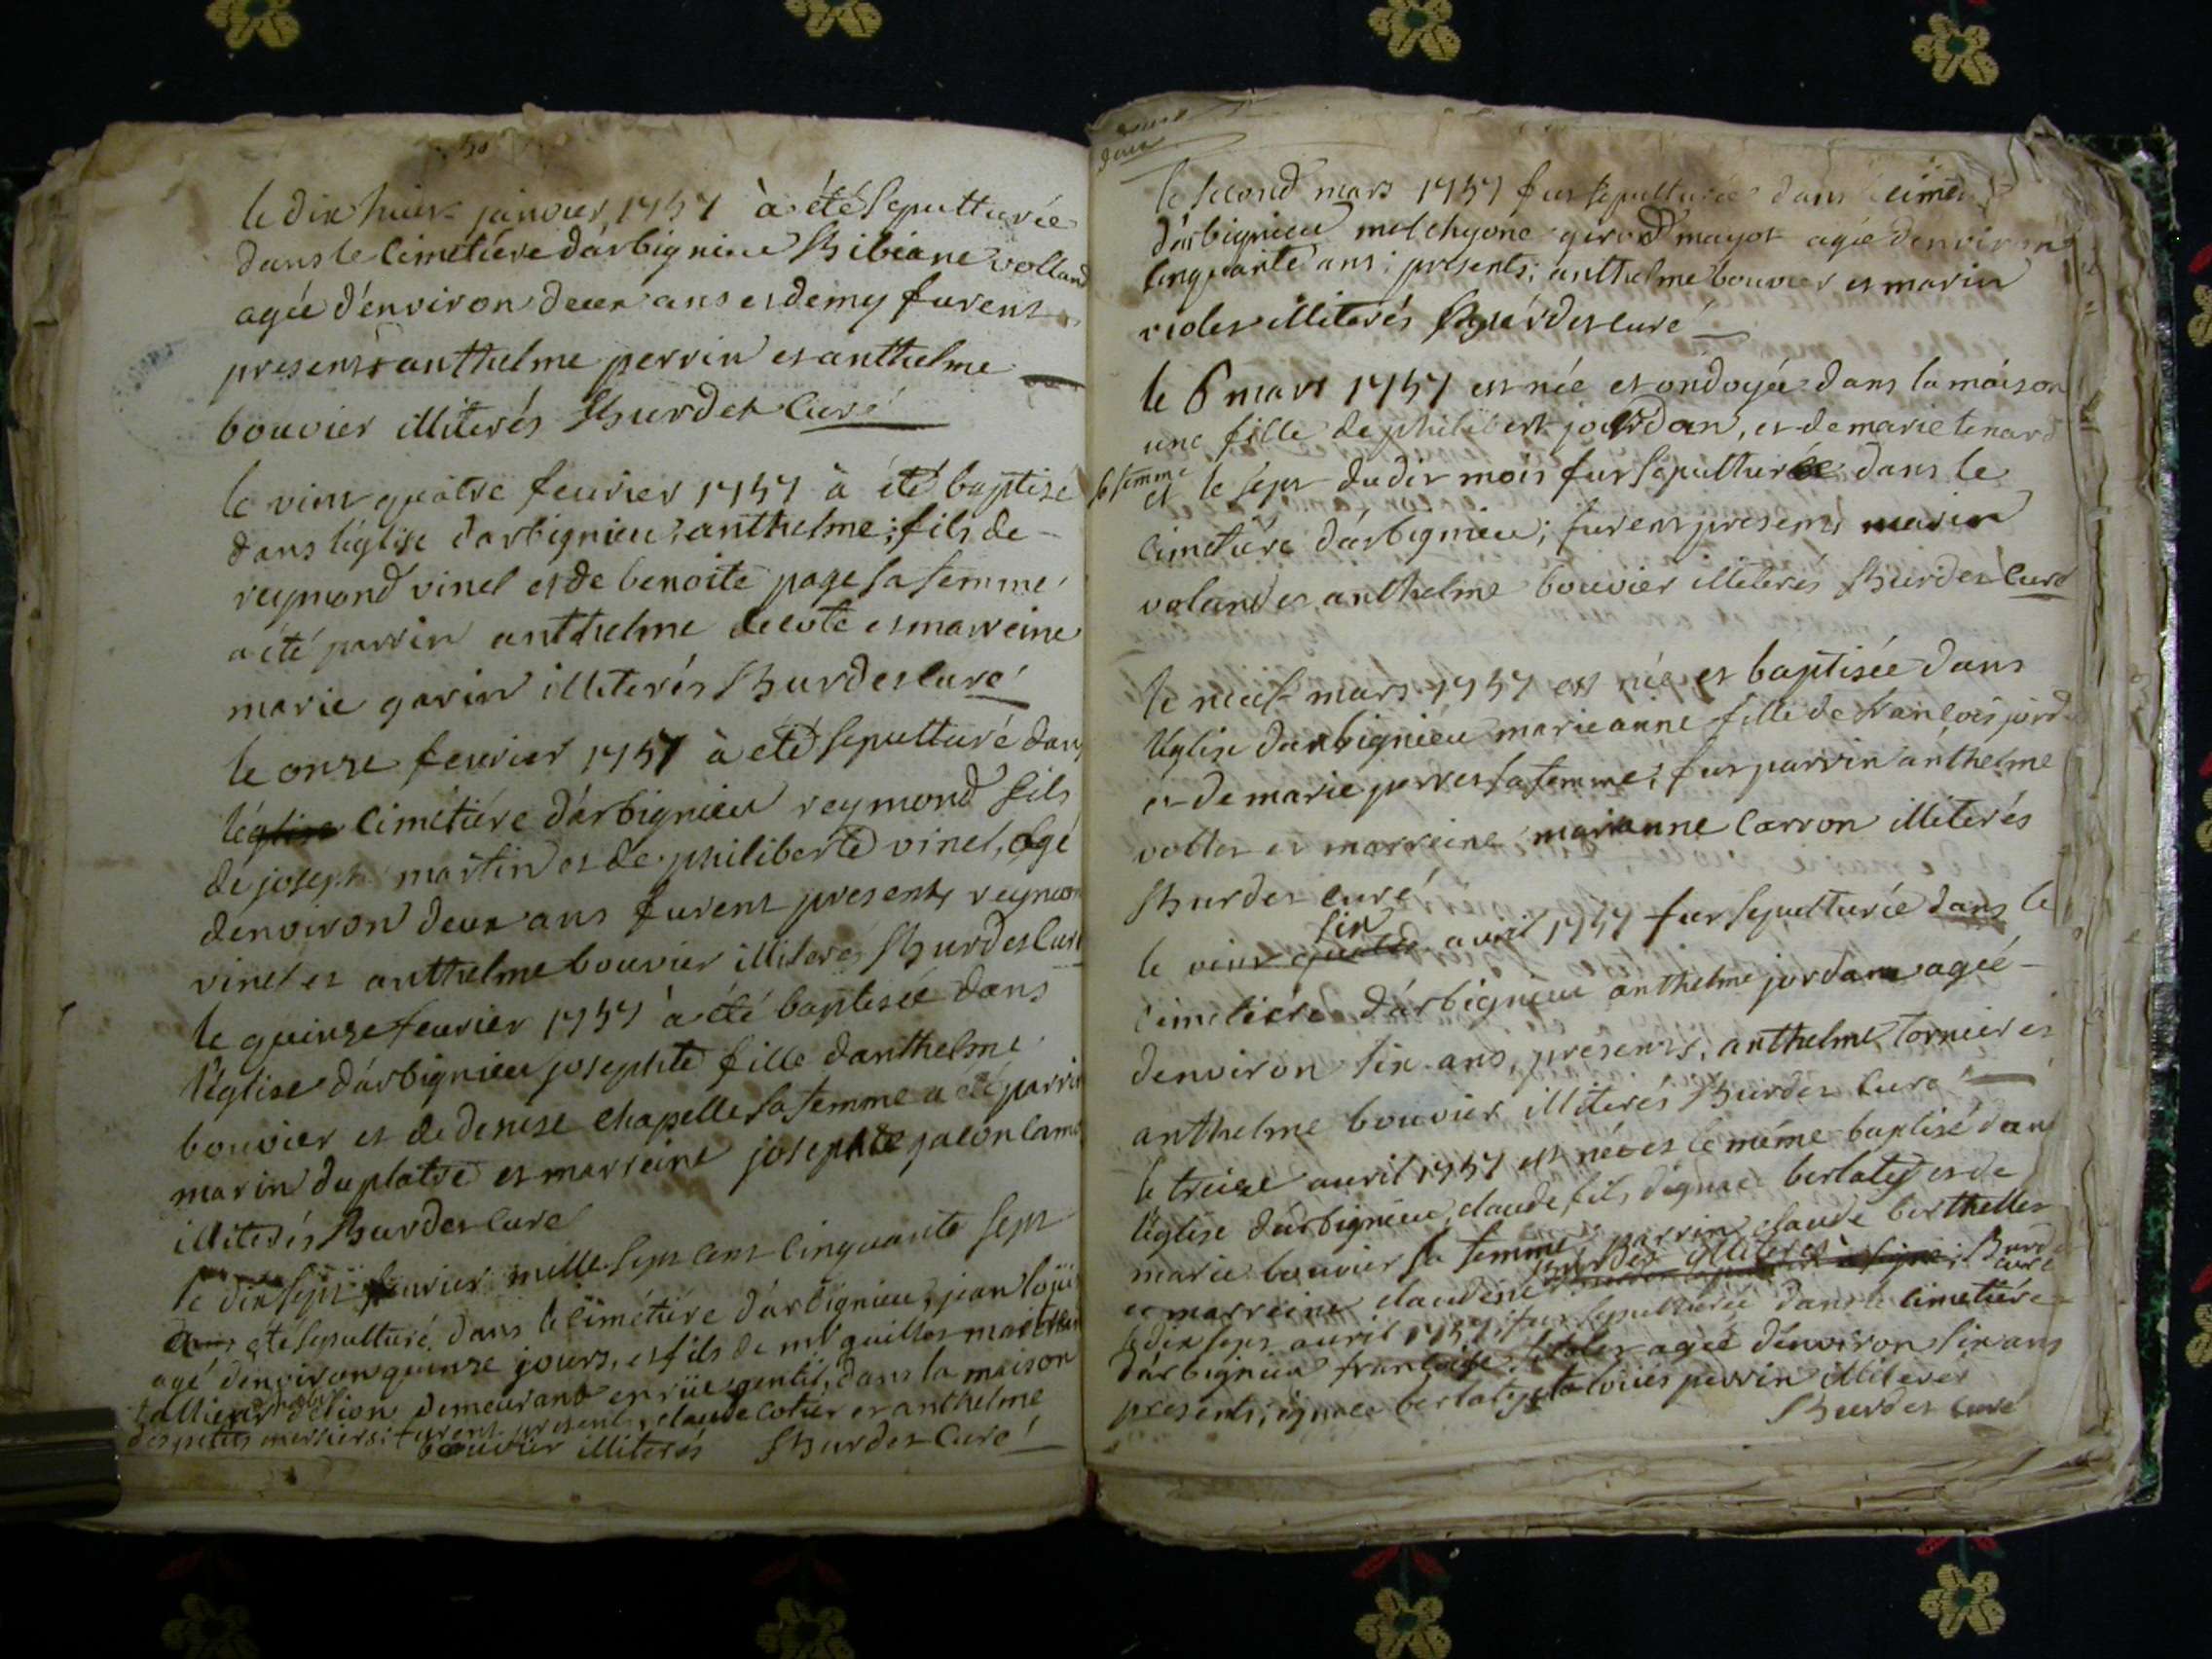 le dix huit janvier 1757 à été sepulturée
dans le cimetiére d'arbignieu Bibiane volland
agée d'environ deux ans et demy furent
presents anthelme perrin et anthelme
bouvier illiterés Burdet curé
le vint quatre feurier 1757 à été baptisé
dans l'église d'arbignieu; anthelme; fils de
reymond vinel et de benoite page sa femme
a été parrin anthelme decote et marreine
marie garin illiterés Burdet curé
le onze feurier 1757 à été sepulturé dans
l'église cimétiére d'arbignieu reymond fils
de joseph martin et de philiberte vinel, agé
d'environ deux ans furent presents reymon
vinel et anthelme bouvier illiterés Burdet curé
le quinze feurier 1757 à été baptisée dans
l'église d'arbignieu josephte fille d'anthelme
bouvier et de denise chapelle sa femme a été parrin
marin duplatre et marreine josephte
illiterés Burdet curé
le dix sept feurier mille sept cent cinquante sept
été sepulturé dans le cimétiére d'arbignieu, jean loüis
agé d'environ quinze jours, et fils de mr guillot maitre
tallieur d'habit de lion demeurant en rüe gentil, dans la maison
des petits merciers; furent presents, claude cotier et anthelme
bouvier illiterés Burdet curé
le second mars 1757 fut sepulturée dans le cimet
d'arbignieu melchyone giroud mayot agée d'environ
cinquante ans; présents; anthelme bouvier et marin
violet illiterés Burdet curé
le 6 mars 1757 est née et ondoyée dans la maison
une fille de philibert jourdan, et de marie tenard
sa femme et le sept dudit mois fut sepulturée dans le
cimetiére d'arbignieu; furent presents marin
voland et anthelme bouvier illiterés Burdet curé
le neuf mars 1757 est née et baptisée dans
l'église d'arbignieu marieanne fille de françois jord
et de marie perret sa femme; fut parrin anthelme
vollet et marreine marianne carron illiterés
Burdet curé
le vint quatre six avril 1757 fut sepulturée dans le
cimetiére d'arbignieu anthelme jordan agée
d'environ six ans, présents, anthelme tornier et
anthelme bouvier illiterés Burdet curé
le treize avril 1757 est né et le même baptisé dans
l'église d'arbignieu, claude, fils d'ignace berlatey et de
marie bouvier sa femme, parrin claude berthellet
et marreine claudine illiterés Burdet curé
le dix sept avril 1757 fut sepulturée dans le cimetiére
d'arbignieu françoise agée d'environ six ans
présents; ignace berlatey et loüis perrin illiterés
Burdet curé